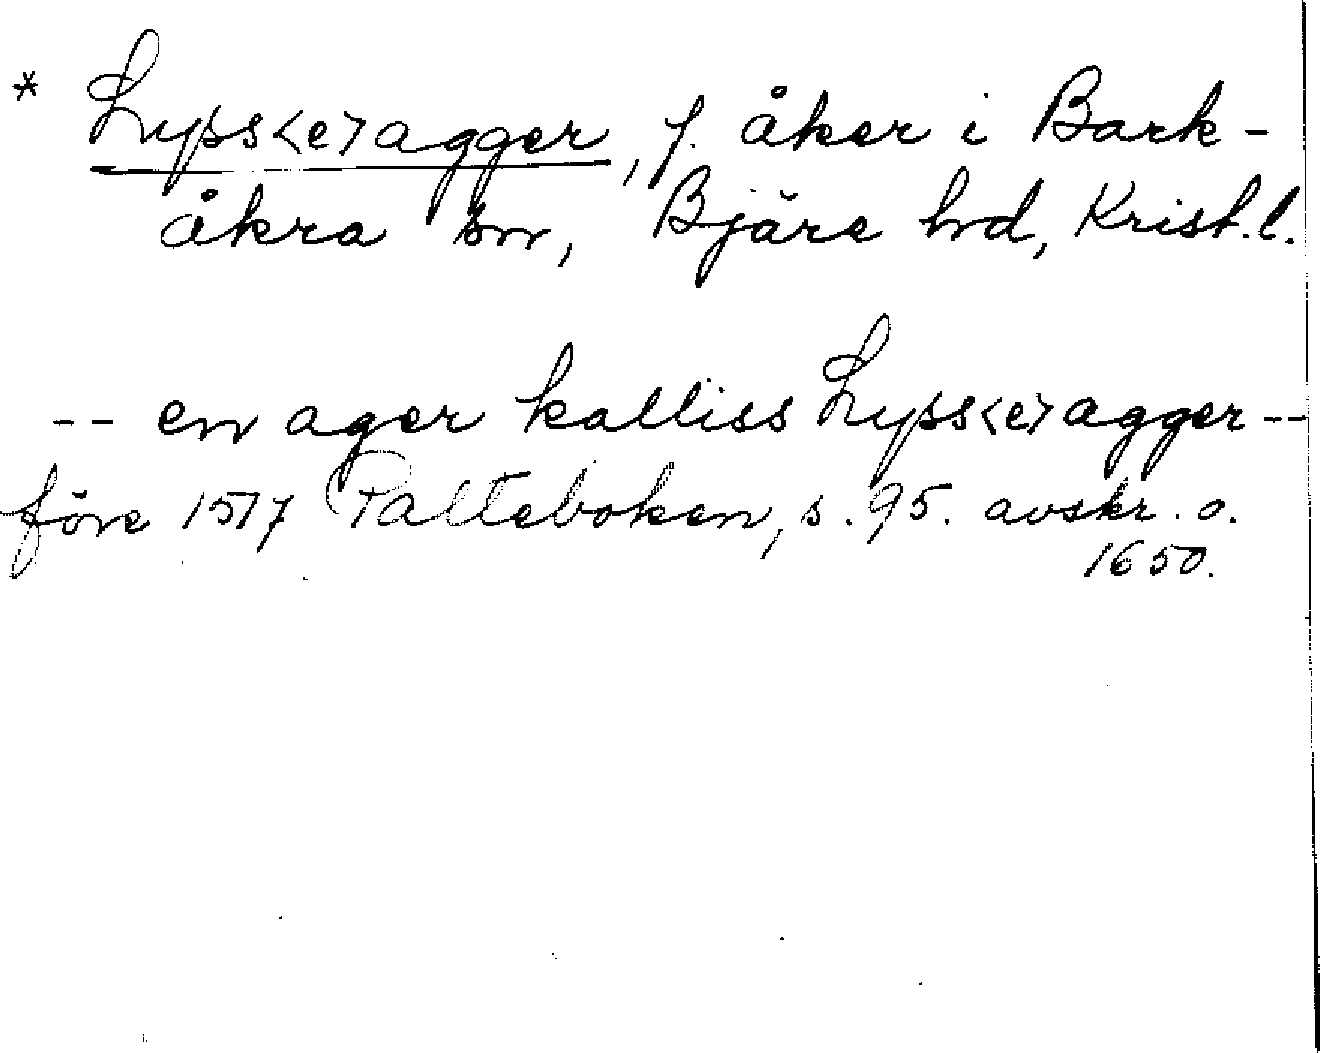 * Lyps<e>agger, f. åker i Bark-
åkra sn, Bjäre hd, Krist.l.
-- en ager kalliss Lyps<e>agger --
före 1517 Palteboken, s. 95. avskr. o.
1650.